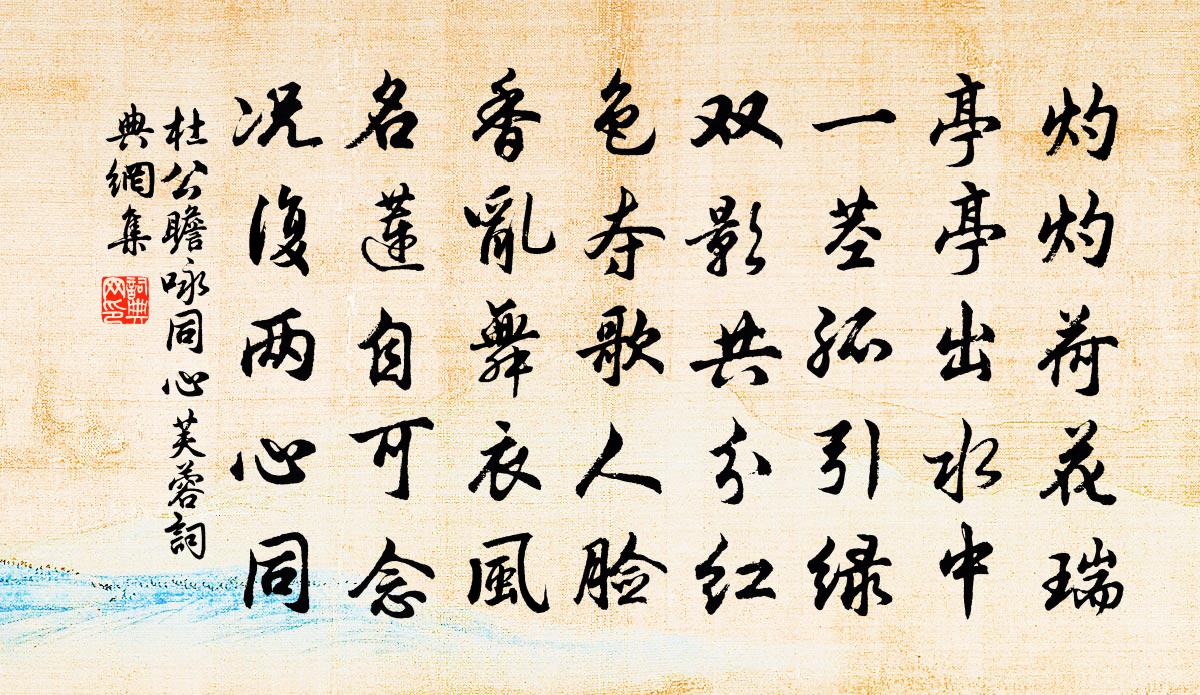 灼灼荷花瑞
亭亭出水中
一茎孤引绿
双影共分红
色夺歌人脸
香亂舞衣風
名莲自可念
况復两心同
杜公瞻咏同心芙蓉詞
典網集
詞典
网印